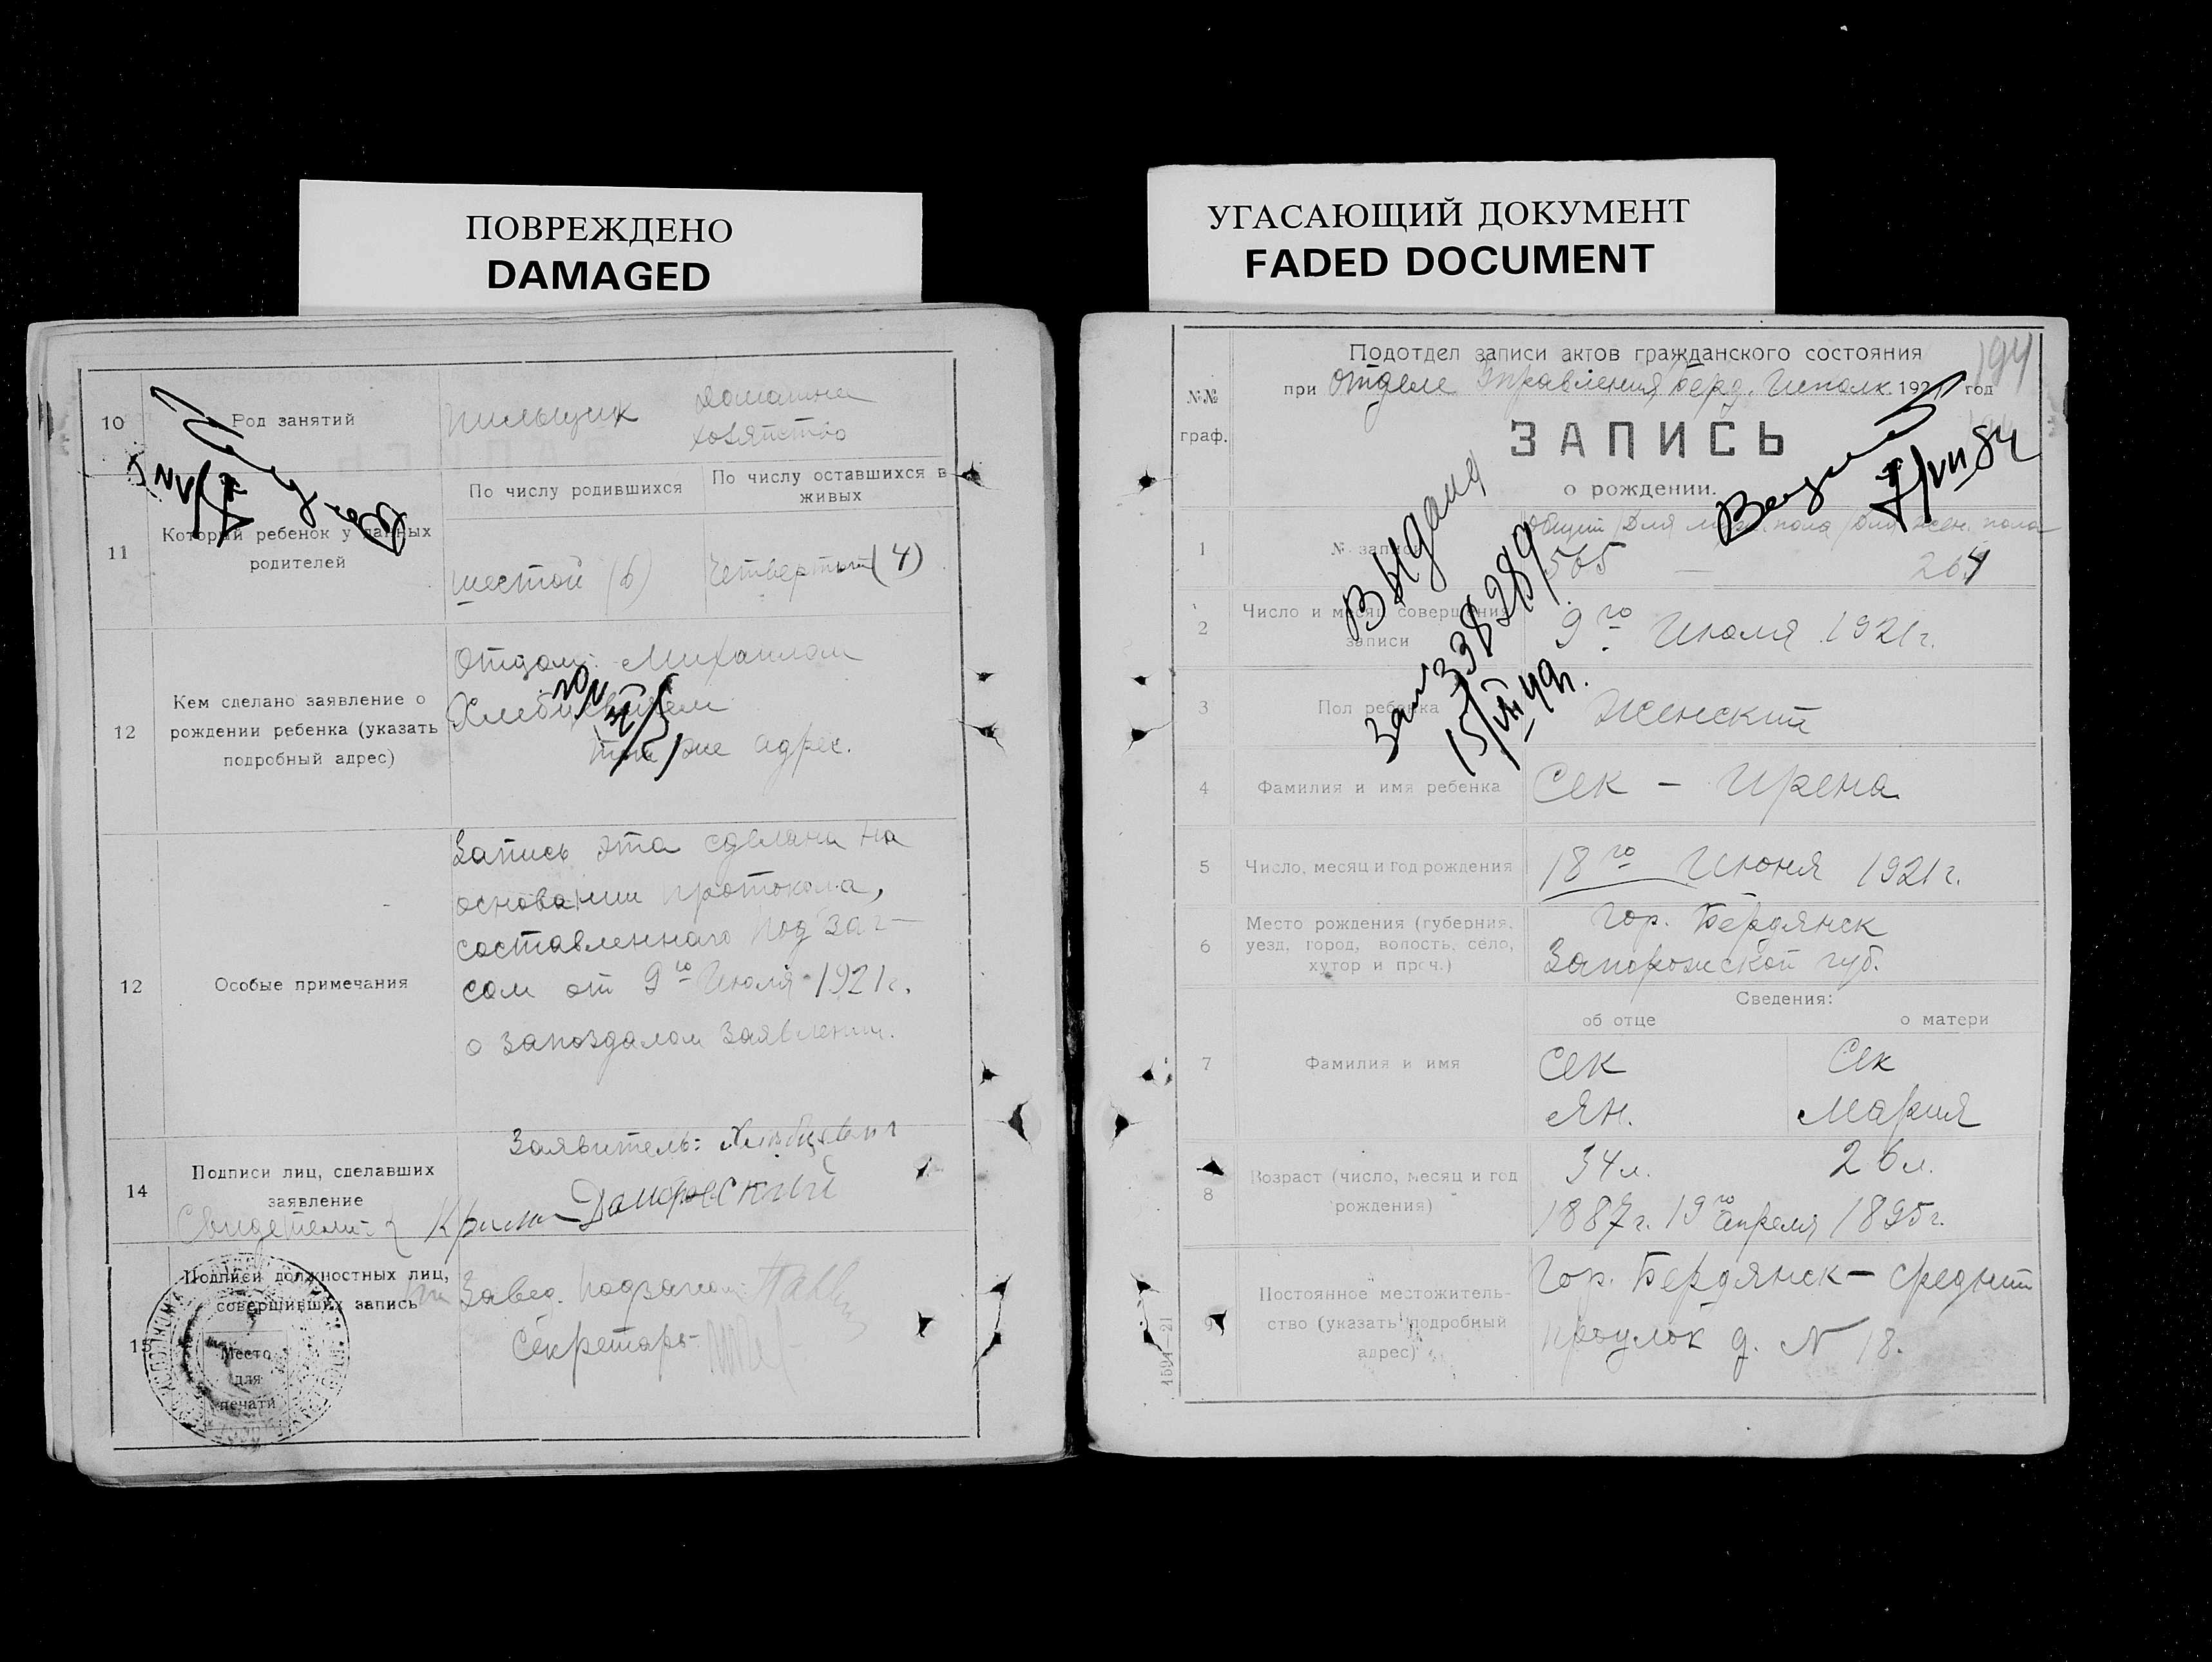 ПОВРЕЖДЕНО
DAMAGED
10
Род занятий
Пильщик
Домашнее
хозяйство
11
Который ребенок у данных
родителей
По числу родившихся
По числу оставшихся в
живых
шестой (6)
Четвертый (4)
12
Кем сделано заявление о
рождении ребенка (указать
подробный адрес)
Отцом: Михаилом
тот же адрес.
12
Особые примечания
Запись эта сделана на
основании протокола,
составленнаго Подзаг-
сом от 9го Июля 1921г.
о запоздалом заявлении.
14
Подписи лиц, сделавших
заявление
Заявитель:
Свидетели:
15
Подписи должностных лиц,
совершивших запись
Завед. Подзагсом
Секретарь
Место
для
печати
УГАСАЮЩИЙ ДОКУМЕНТ
FADED DOCUMENT
194
№№
граф.
Подотдел записи актов гражданского состояния
при Отделе Управления Берд. Исполк. 1921 год
ЗАПИСЬ
о рождении.
Выдана
338289
15/VII 49г.
1
№ записи
Общий / Для муж. пола / Для жен. пола
565 — 264
2
Число и месяц совершения
записи
9го Июля 1921г.
3
Пол ребенка
Женский
4
Фамилия и имя ребенка
Сек - Ирена
5
Число, месяц и год рождения
18го Июня 1921г.
6
Место рождения (губерния,
уезд, город, волость, село,
хутор и проч.)
гор. Бердянск
Запорожской губ.
Сведения:
об отце
о матери
7
Фамилия и имя
Сек
Ян.
Сек
Мария
8
Возраст (число, месяц и год
рождения)
34л.
26л.
1887г. 19го апреля 1895г.
9
Постоянное местожитель-
ство (указать подробный
адрес)
Гор. Бердянск - средний
проулок д. № 18.
1594—21